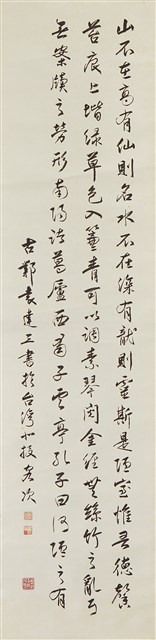 山不在高有仙則名水不在深有龍則靈斯是陋室惟吾德馨
苔痕上堦綠草色入簾青可以調素琴閱金經無絲竹之亂耳
無案牘之勞形南陽諸葛廬西蜀子雲亭孔子曰何陋之有
古鄞袁建工書於台灣北投客次